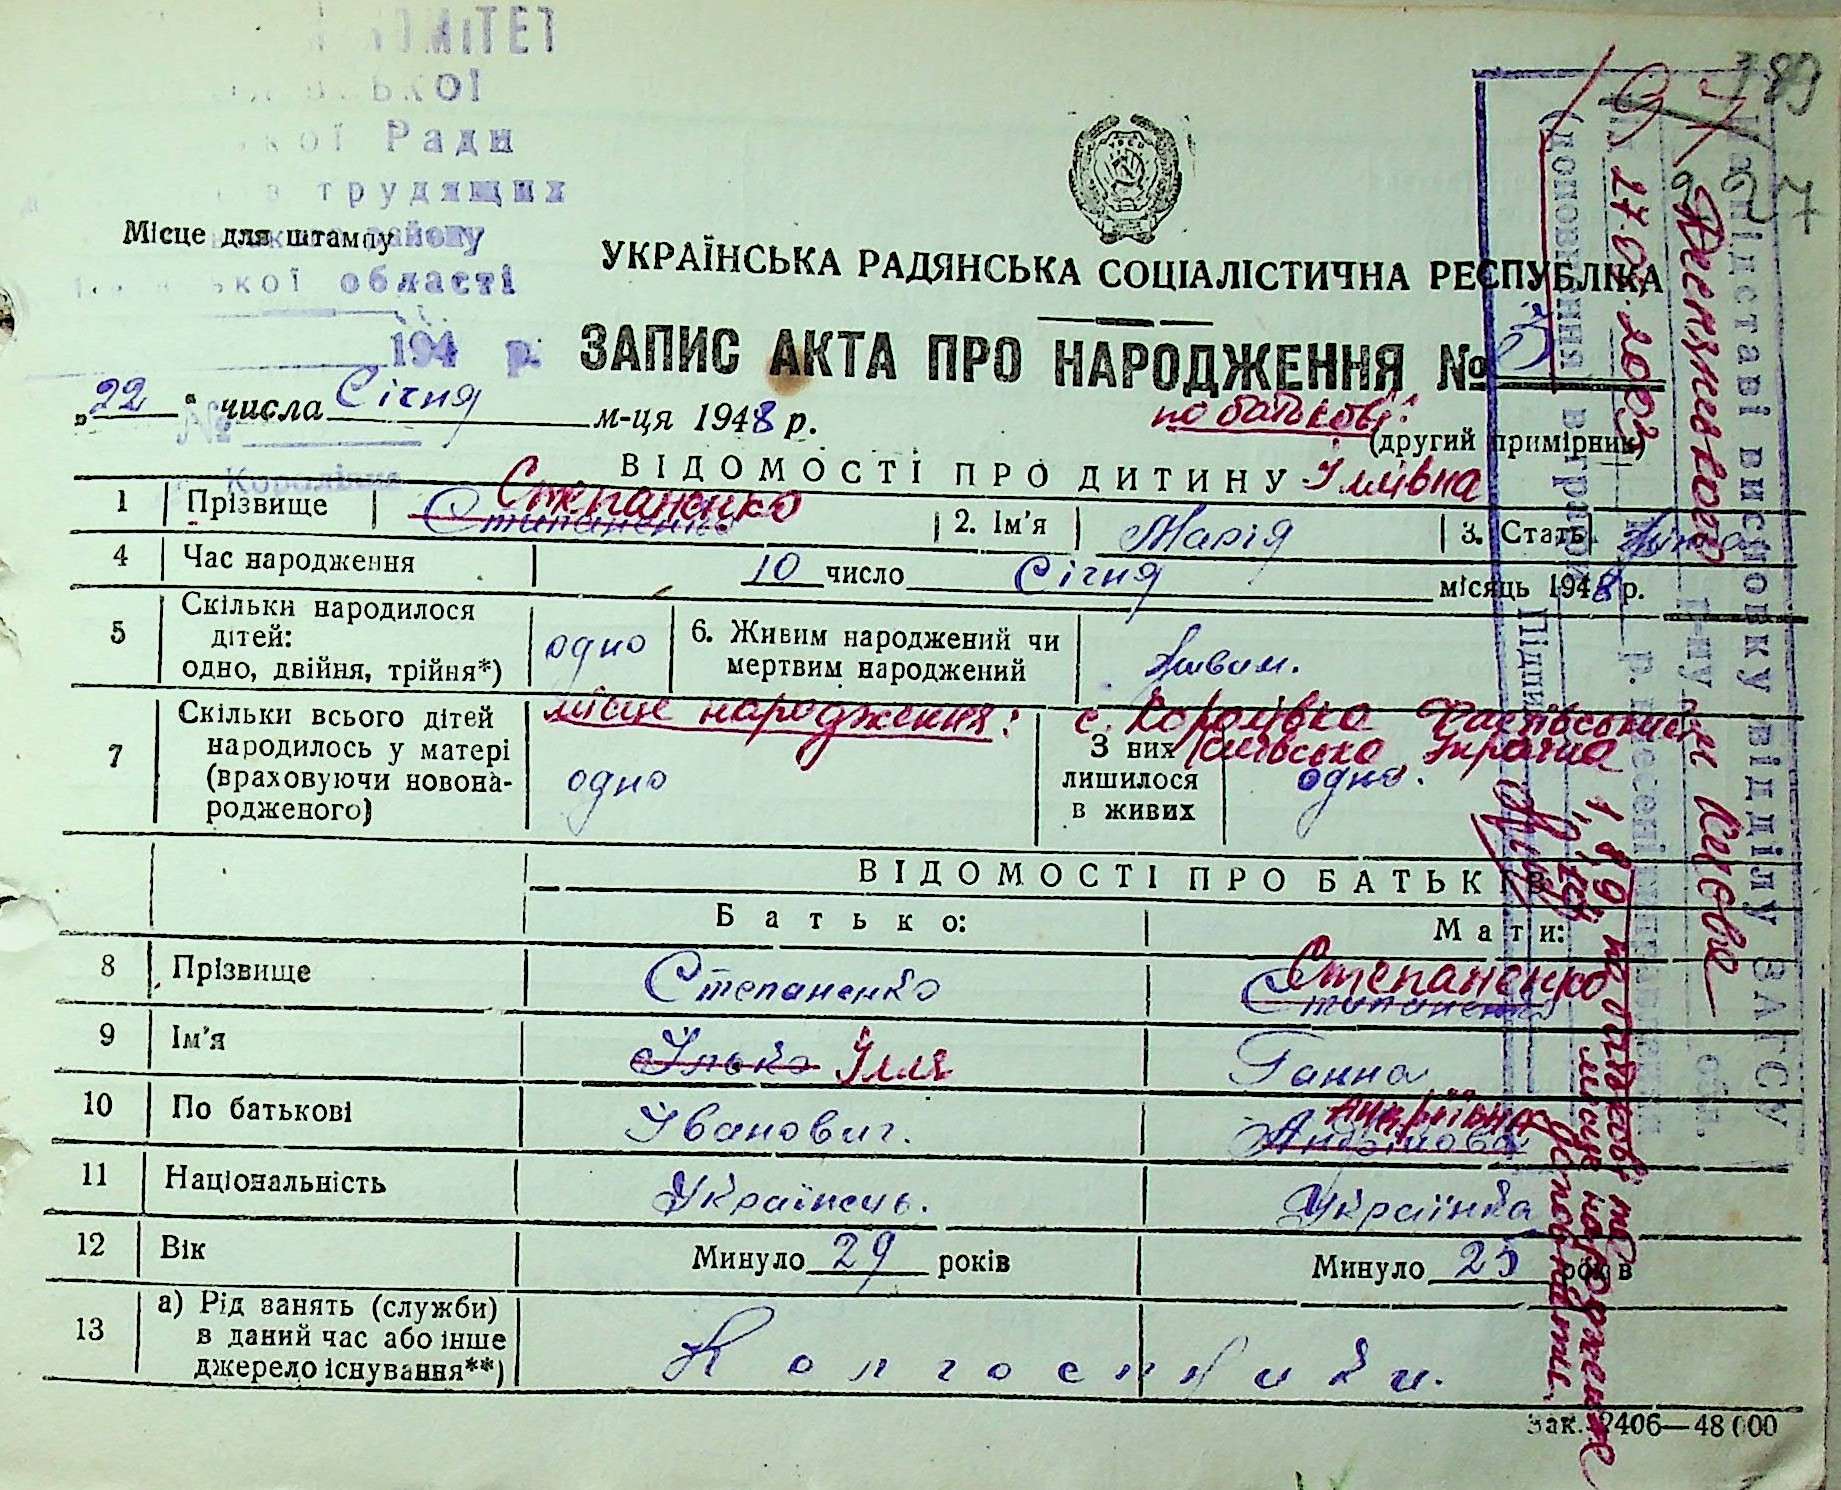 КОМІТЕТ
ської
кої Ради
в трудящих
району
Місце для штампу
ської області
194 р.
№
Ковалівка
189
227
УКРАЇНСЬКА РАДЯНСЬКА СОЦІАЛІСТИЧНА РЕСПУБЛІКА
ЗАПИС АКТА ПРО НАРОДЖЕННЯ № 3
„22“ числа Січня м-ця 1948 р.
по батькові:
(другий примірник)
ВІДОМОСТІ ПРО ДИТИНУ Іллівна
1 Прізвище Стипаненко Степаненко 2. Ім'я Марія 3. Стать
4 Час народження 10 число Січня місяць 1948 р.
5 Скільки народилося дітей: одно, двійня, трійня*) одно 6. Живим народжений чи мертвим народжений Живим.
місце народження: с.
Київська Україна
7 Скільки всього дітей народилось у матері (враховуючи новонародженого) одно З них лишилося в живих одно.
ВІДОМОСТІ ПРО БАТЬКІВ
Батько: Мати:
8 Прізвище Степаненко Стипаненко Степаненко
9 Ім'я Ілько Ілля Ганна
10 По батькові Іванович. Андріївна
11 Національність Українець. Українка
12 Вік Минуло 29 років Минуло 25 років
13 а) Рід занять (служби) в даний час або інше джерело існування**) Колгоспники.
Зак. 2406—48 000
На підставі висновку відділу ЗАГСУ
Дніпровского р-ну м. Києва обл.
від 27.02.2003 р. внесені виправлення
(доповнення) в графи 1, 8, 9, по батькові та місце народження доповнити.
Підпис